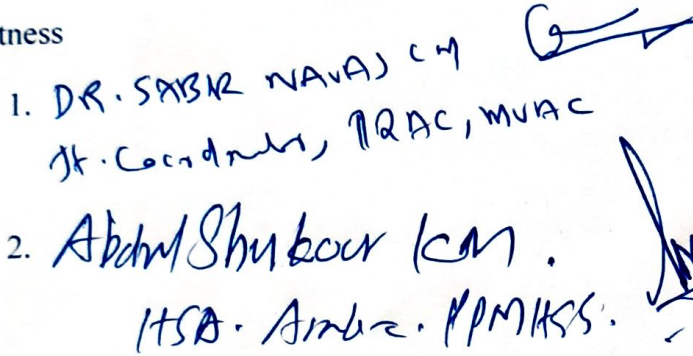 tness
1. DR. SABIR NAVAS CM
Jt. Coordinator, IQAC, MUAC
2. Abdul Shukoor KM.
HSA. Arabic. PPMHSS.